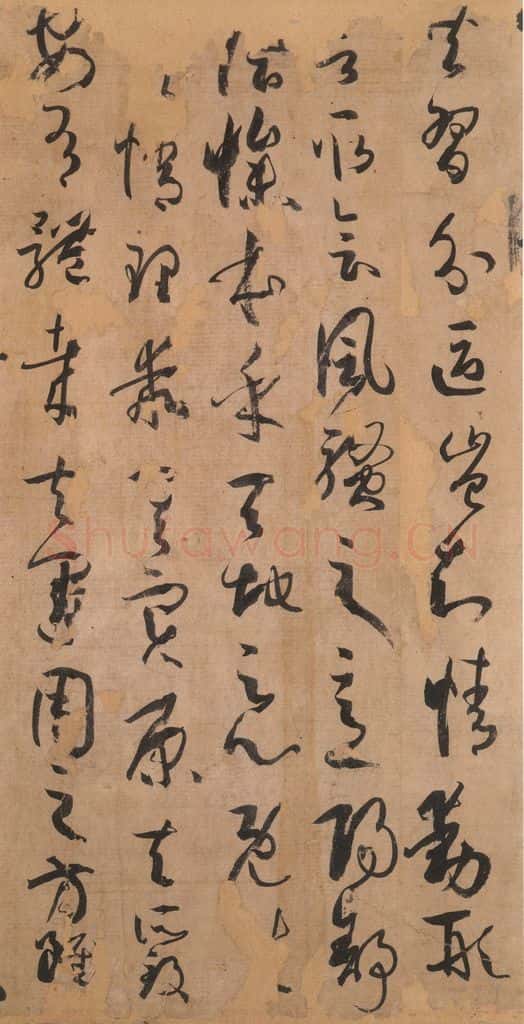 共習分區豈知情動形
言取會風騷之意陽舒
陰慘本乎天地之心既
情理乖其實原夫所致
安有體哉夫運用之方雖
shufawang.CN